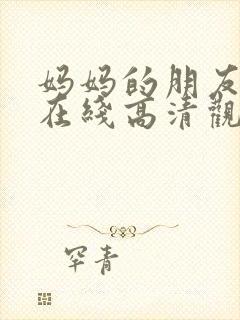 妈妈的朋友
在綫高清觀
罕青